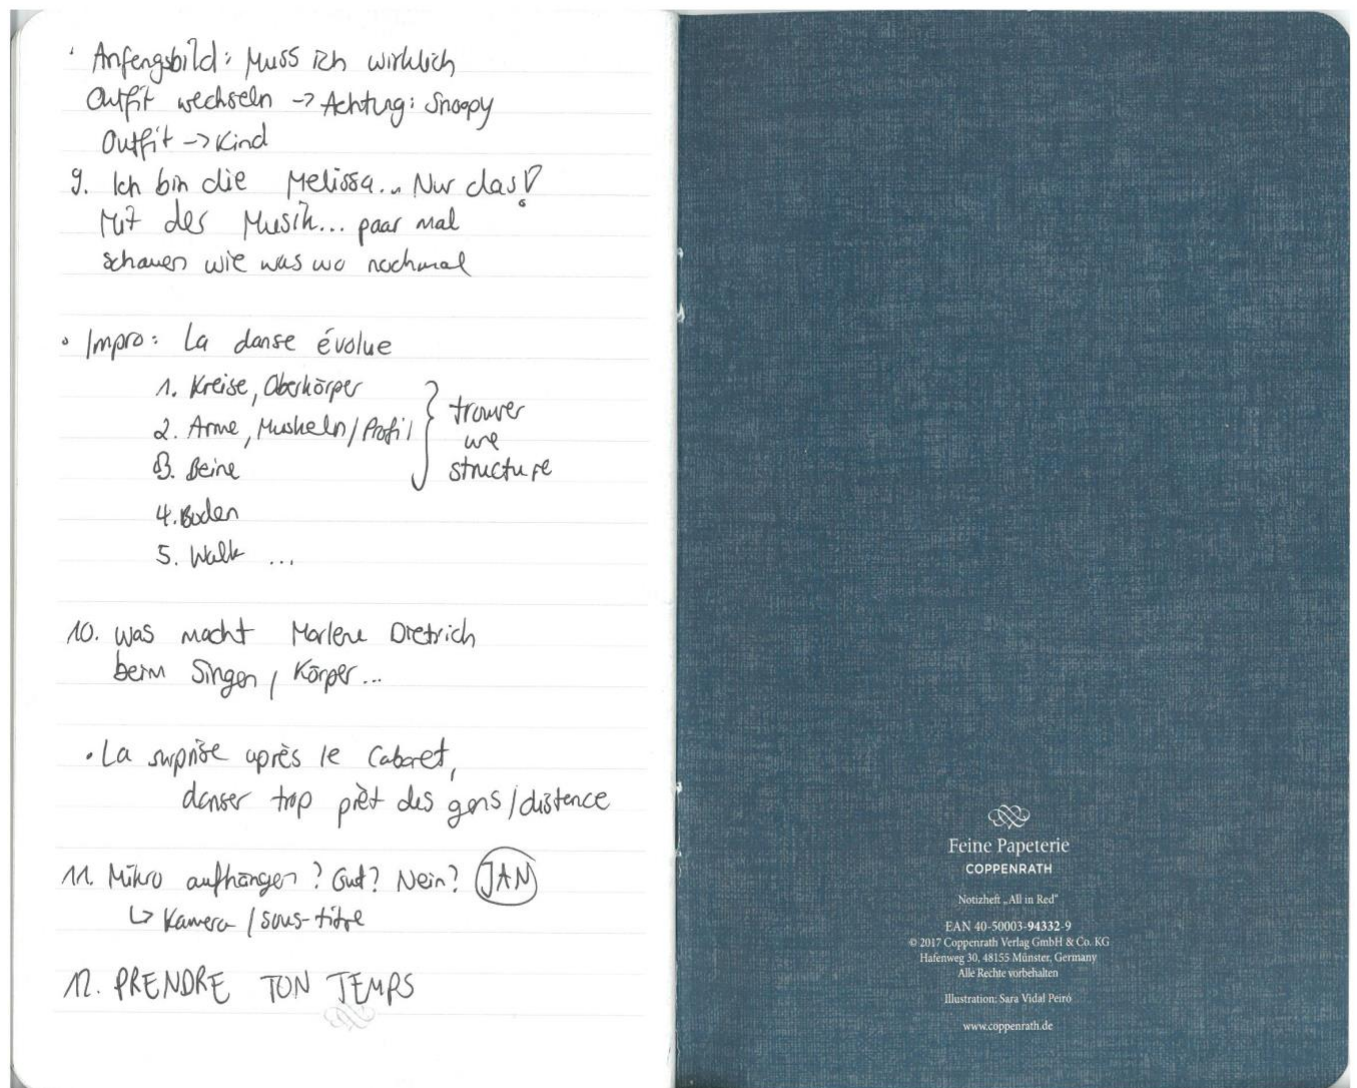 • Anfangsbild: Muss ich wirklich
Outfit wechseln -> Achtung: Snoopy
Outfit -> Kind
9. Ich bin die Melissa... Nur das!
Mit der Musik... paar mal
schauen wie was wo nochmal
• Impro: La danse évolue
1. Kreise, Oberkörper
2. Arme, Muskeln/Profil
3. Beine
4. Boden
5. Walk ...
trouver
une
structure
10. Was macht Marlene Dietrich
beim Singen / Körper...
• La surprise après le Cabaret,
danser trop prêt des gens / distence
11. Mikro aufhängen? Gut? Nein? JAN
↳ Kamera / sous-titre
12. PRENDRE TON TEMPS
Feine Papeterie
COPPENRATH
Notizheft „All in Red“
EAN 40-50003-94332-9
© 2017 Coppenrath Verlag GmbH & Co. KG
Hafenweg 30, 48155 Münster, Germany
Alle Rechte vorbehalten
Illustration: Sara Vidal Peiró
www.coppenrath.de